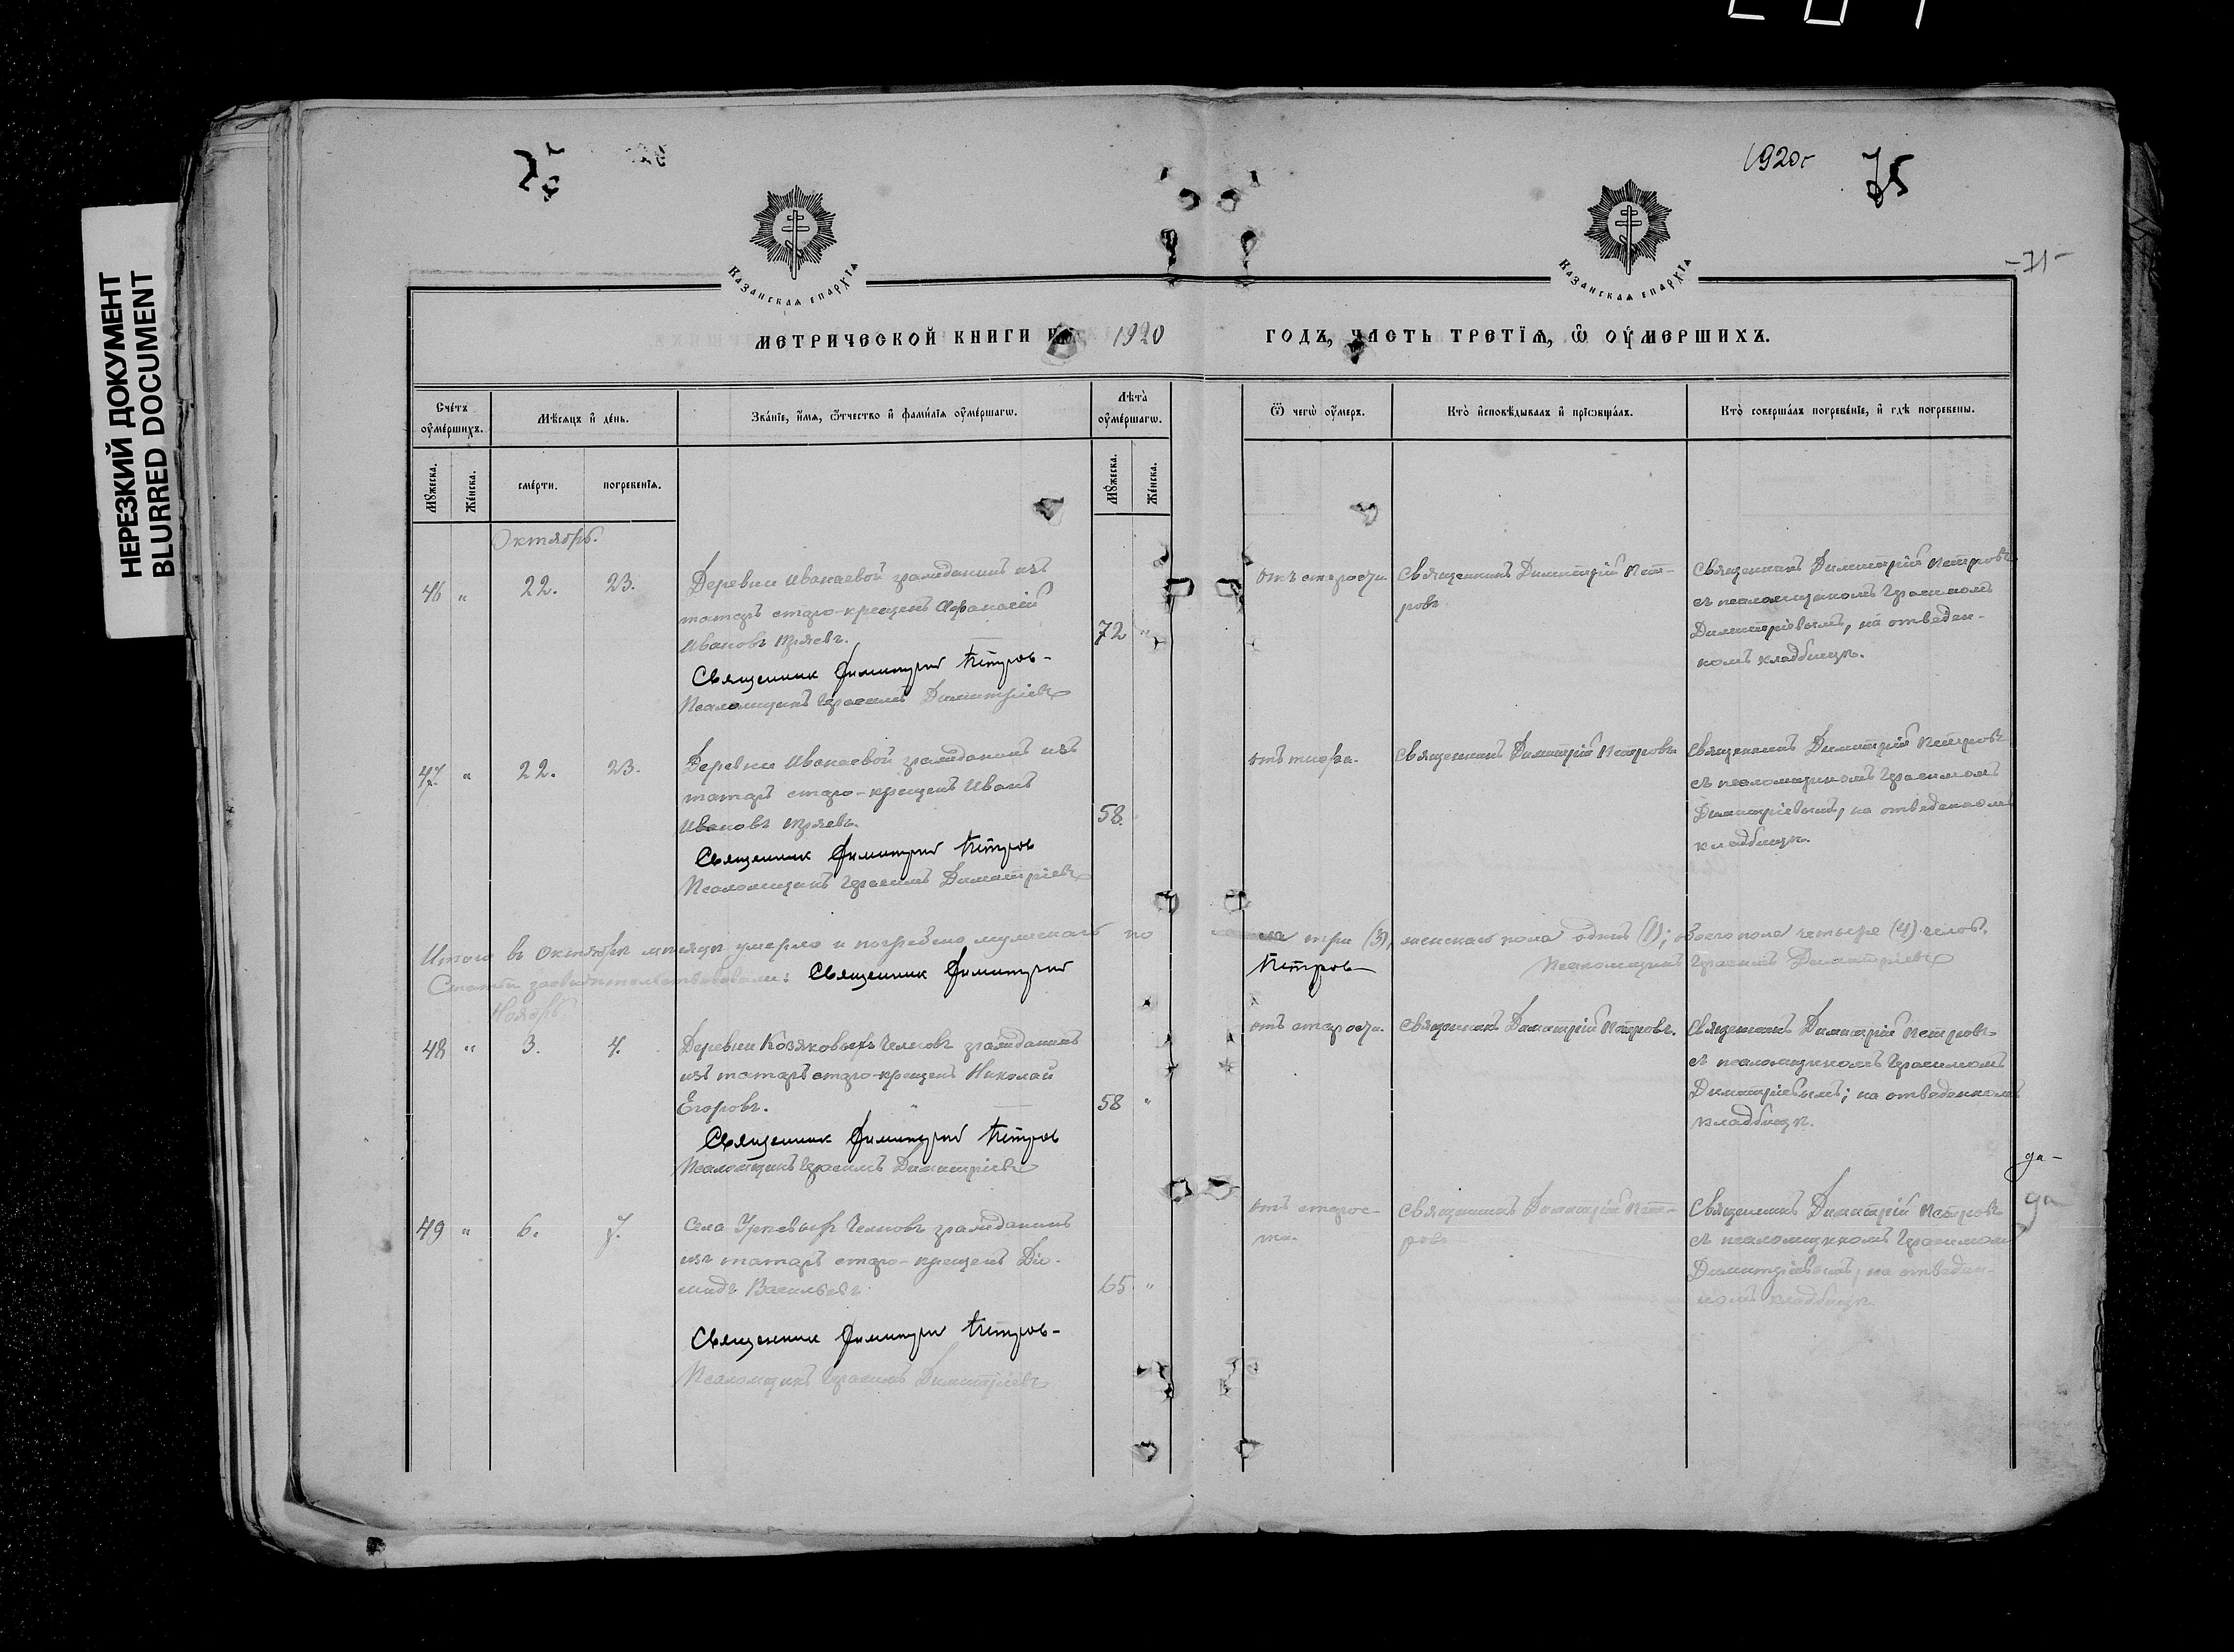 НЕРЕЗКИЙ ДОКУМЕНТ
BLURRED DOCUMENT
1920г
75
-71-
КАЗАНСКАЯ ЕПАРХІЯ
КАЗАНСКАЯ ЕПАРХІЯ
МЕТРИЧЕСКОЙ КНИГИ 1920
ГОДЪ, ЧАСТЬ ТРЕТІЯ, Ѽ ОУ҆МЕРШИХЪ.
Сче́тъ оу҆ме́ршихъ.
Мѣ́сяцъ и҆ де́нь.
Зва́нїе, и҆́мя, ѻ҆́тчество и҆ фами́лїя оу҆ме́ршагѡ.
Лѣта̀ оу҆ме́ршагѡ.
Ѿ чегѡ̀ оу҆́меръ.
Кто̀ и҆сповѣ́дывалъ и҆ прїѡбща́лъ.
Кто̀ соверша́лъ погребе́нїе, и҆ гдѣ̀ погребены.
Мꙋ́жеска.
Же́нска.
сме́рти.
погребе́нїѧ.
Мꙋ́жеска.
Же́нска.
Октябрь.
46 " 22. 23.
Деревни Иванаевой гражданинъ изъ
татаръ старо-крещенъ Афанасій
Ивановъ
72 "
Священник Димитрий Петров
Псаломщикъ Герасимъ Димитріевъ
отъ старости
Священникъ Димитрій Пет-
ровъ
Священникъ Димитрій Петровъ
съ псаломщикомъ Герасимомъ
Димитріевымъ, на отведен-
номъ кладбищѣ.
47. " 22. 23.
Деревни Иванаевой гражданинъ изъ
татаръ старо-крещенъ Иванъ
Ивановъ
58.
Священник Димитрий Петров
Псаломщикъ Герасимъ Димитріевъ
отъ тифа.
Священникъ Димитрій Петровъ
Священникъ Димитрій Петровъ
съ псаломщикомъ Герасимомъ
Димитріевымъ, на отведенномъ
кладбищѣ.
Итого въ Октябрѣ мѣсяцѣ умерло и погребено мужскаго по
ла три (3), женскаго пола одинъ (1); обоего пола четыре (4) челов.
засвидетельствовали: Священник Димитрий
Петров
Псаломщикъ Герасимъ Димитріевъ
Ноябрь
48 " 3. 4.
Деревни Козяковыхъ Челновъ гражданинъ
изъ татаръ старо-крещенъ Николай
Егоровъ.
58 "
Священник Димитрий Петров
Псаломщикъ Герасимъ Димитріевъ
отъ старости.
Священникъ Димитрій Петровъ.
Священникъ Димитрій Петровъ
съ псаломщикомъ Герасимомъ
Димитріевымъ; на отведенномъ
кладбищѣ.
49 " 6. 7.
Села Челновъ гражданинъ
изъ татаръ старо-крещенъ Діо-
мидъ Васильевъ
65 "
Священник Димитрий Петров
Псаломщикъ Герасимъ Димитріевъ
отъ старос-
ти.
Священникъ Димитрій Пет-
ровъ
Священникъ Димитрій Петровъ
съ псаломщикомъ Герасимомъ
Димитріевымъ, на отведен-
номъ кладбищѣ.
да-
да